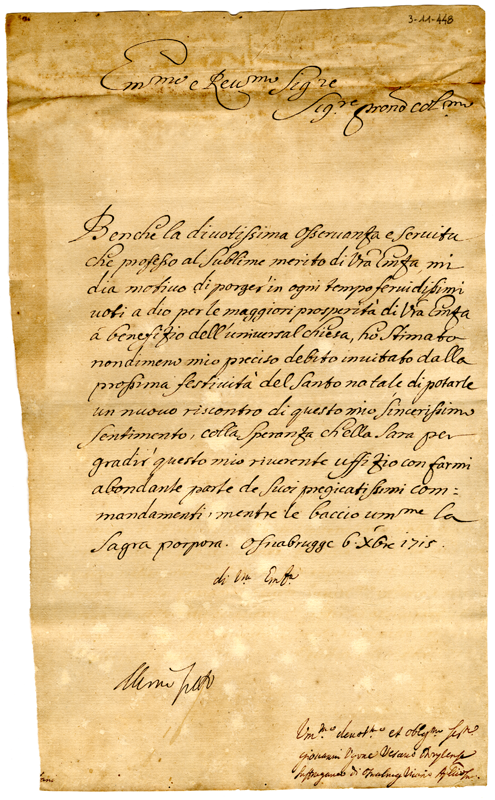 3-11-448
Em.smo e Reu.smo Sig.re
Sig.re prone col.mo
Benche la divotissima osseruanza e seruitu
che professo al sublime merito di Vra Emza mi
dia motivo di porger in ogni tempo feruidissimi
uoti a dio per le maggiori prosperità di Vra Emza
à benefizio dell'universal chiesa, ho stimato
nondimeno mio preciso debito invitato dalla
prossima festività del Santo natale di potarle
un nuovo riscontro di questo mio sincerissimo
sentimento, colla speranza ch'ella sara per
gradir questo mio riverente uffizio con farmi
abondante parte de suoi pregicatissimi com=
mandamenti, mentre le baccio um.me la
sagra porpora. Osnabrugge 6. Xbre 1715.
di Vra Emza
Um.mo deuot.mo et oblig.mo ser.re
Giovanni
Suffraganeo di